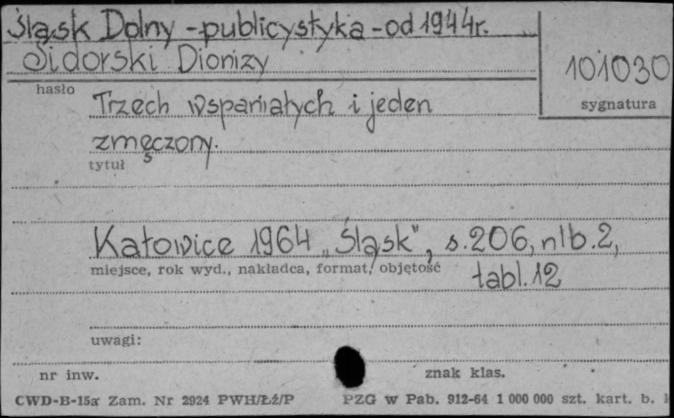 Śląsk Dolny - publicystyka - od 1944r.
Sidorski Dionizy
101030
hasło
sygnatura
Trzech wspaniałych i jeden
zmęczony.
tytuł
Katowice 1964 „Śląsk", s. 206, nlb. 2,
miejsce, rok wyd., nakładca, format, objętość
tabl. 12
uwagi:
nr inw.
znak klas.
CWD-B-15a Zam. Nr 2924 PWH/Łź/P
PZG w Pab. 912-64 1 000 000 szt. kart. b.